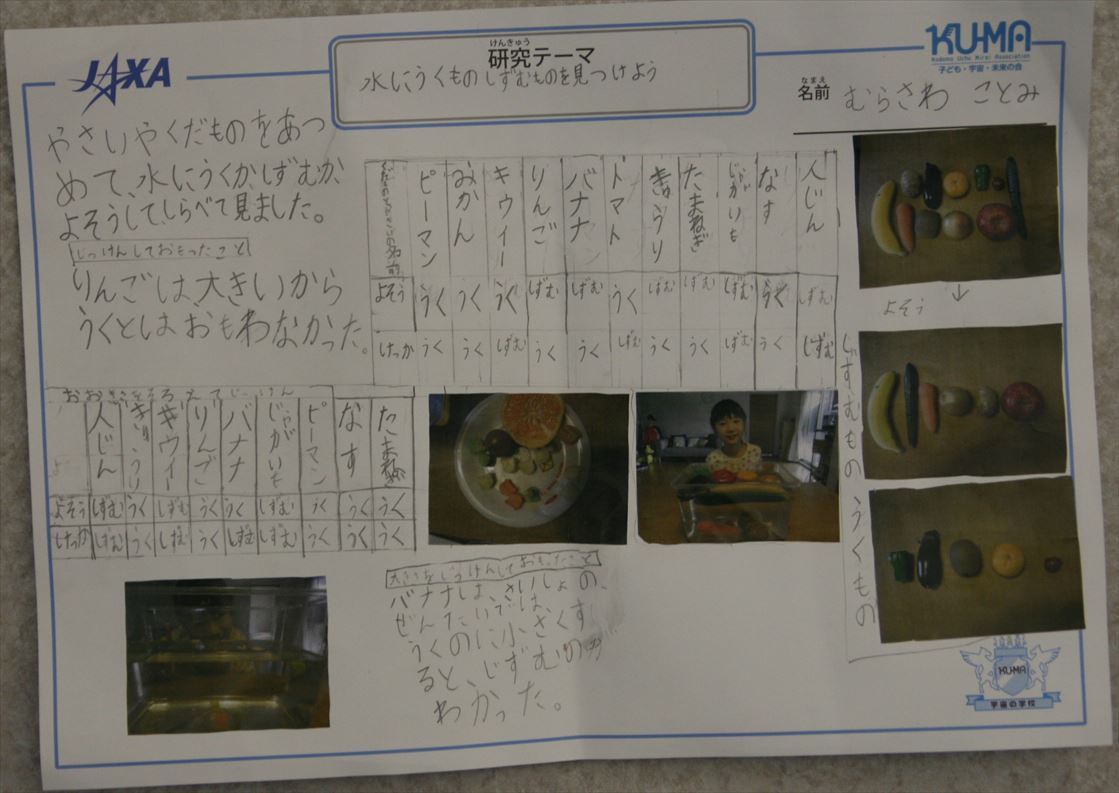 JAXA
けんきゅう
研究テーマ
水にうくものしずむものを見つけよう
KU-MA
Kodomo Uchu Mirai Association
子ども・宇宙・未来の会
なまえ
名前 むらさわ ことみ
やさいやくだものをあつ
めて、水にうくか、しずむか、
よそうしてしらべて見ました。
じっけんしておもったこと
りんごは大きいから
うくとはおもわなかった。
ピーマン みかん キウィー りんご バナナ トマト きゅうり たまねぎ じゃがいも なす 人じん
よそう うく うく うく しずむ しずむ うく しずむ しずむ しずむ うく しずむ
けっか うく うく しずむ うく うく しずむ うく うく しずむ うく しずむ
よそう
しずむもの
うくもの
おおきさをそろえてじっけん
人じん きゅうり キウイー りんご バナナ じゃがいも ピーマン なす たまねぎ
よそう しずむ うく しずむ うく うく しずむ うく うく うく
けっか しずむ うく しずむ うく しずむ しずむ うく うく うく
バナナは、さいしょの、
ぜんたいでは、
うくのに小さくす
ると、しずむのが
わかった。
KU-MA
宇宙の学校